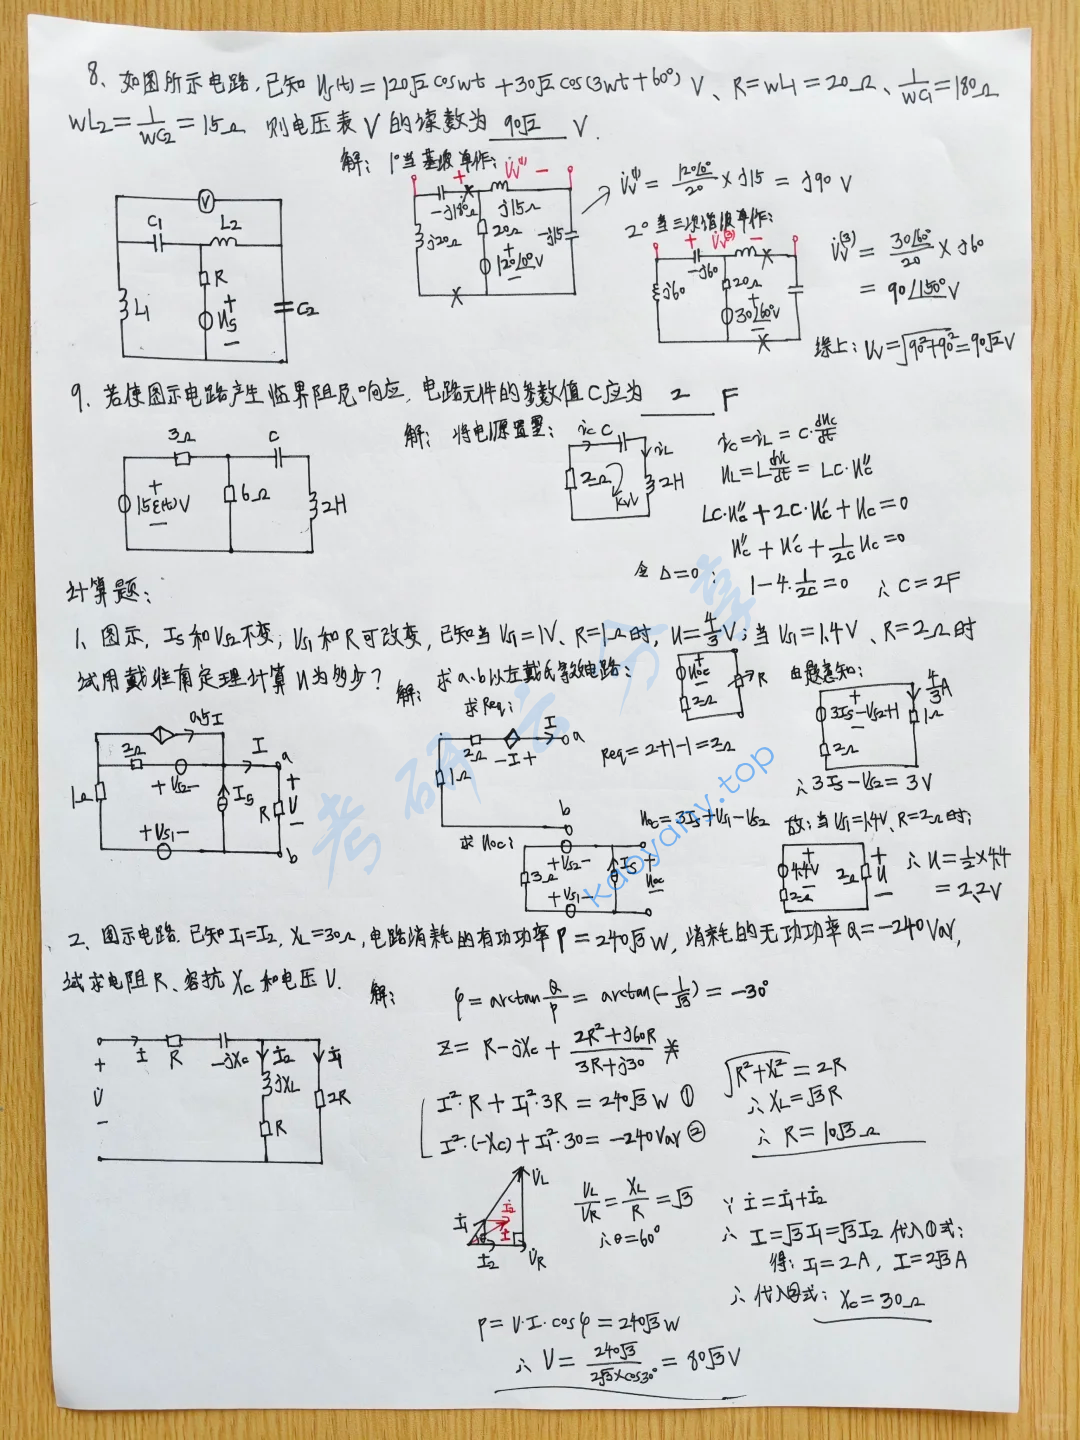 8、如图所示电路,已知 Us(t)=120√2 coswt+30√2 cos(3wt+60°) V、R=wL1=20Ω、1/wC1=180Ω
wL2=1/wC2=15Ω 则电压表V的读数为 90√2 V.
解: 1°当基波单作:
V
C1
L2
R
L1
+
Us
−
C2
+ U̇v⁽¹⁾ −
-j180Ω
j15Ω
j20Ω
20Ω
-j15
+
120∠0°V
−
U̇v⁽¹⁾=120∠0°/20 × j15 = j90 V
2°当三次谐波单作:
+ U̇v⁽³⁾ −
-j60
j60
20Ω
+
30∠60°V
−
U̇v⁽³⁾=30∠60°/20 × j60
= 90∠150° V
综上: Uv=√(90²+90²)=90√2 V
9、若使图示电路产生临界阻尼响应,电路元件的参数值C应为 2 F
3Ω
C
+
15ε(t)V
−
6Ω
2H
解: 将电源置零:
ic C
iL
2Ω
KVL
2H
ic=iL=C·duc/dt
UL=L diL/dt=LC·Uc″
LC·Uc″+2C·Uc′+Uc=0
Uc″+Uc′+1/2C Uc=0
令Δ=0: 1-4·1/2C=0 ∴C=2F
计算题:
1、图示, Is和Us2不变; Us1和R可改变, 已知当Us1=1V、R=1Ω时, U=4/3V; 当Us1=1.4V、R=2Ω时
试用戴维南定理计算U为多少?
解: 求a、b以左戴氏等效电路:
求Req:
0.5I
2Ω
+Us2−
I
a
1Ω
Is
R
+
U
−
+Us1−
b
I
a
2Ω
−I+
1Ω
b
Req=2+1-1=2Ω
+
Uoc
−
2Ω
R
由题意知:
+
3Is-Us2+1
−
2Ω
4/3A
1Ω
∴3Is-Us2=3V
求Uoc:
+Us2−
3Ω
+Us1−
Is
+
Uoc
−
Uoc=3Is+Us1-Us2
故: 当Us1=1.4V、R=2Ω时:
+
4.4V
−
2Ω
2Ω
+
U
−
∴U=1/2×4.4
=2.2V
2、图示电路,已知I1=I2, XL=30Ω, 电路消耗的有功功率P=240√3 W, 消耗的无功功率Q=-240Var,
试求电阻R、容抗Xc和电压U.
İ
R
-jXc
İ2
İ1
+
U̇
−
jXL
R
2R
解: φ=arctan Q/P = arctan(-1/√3) = -30°
Z=R-jXc+(2R²+j60R)/(3R+j30) ※
I²·R+I1²·3R=240√3 W ①
I²·(-Xc)+I1²·30=-240Var ②
√(R²+XL²)=2R
∴XL=√3R
∴R=10√3Ω
U̇L
İ1
İ2
İ
İ2
U̇R
UL/UR=XL/R=√3
∴θ=60°
∵İ=İ1+İ2
∴I=√3I1=√3I2 代入①式:
得: I1=2A, I=2√3A
∴代入②式: Xc=30Ω
P=U·I·cosφ=240√3 W
∴U=240√3/(2√3×cos30°)=80√3 V
考研云分享
kaoyany.top